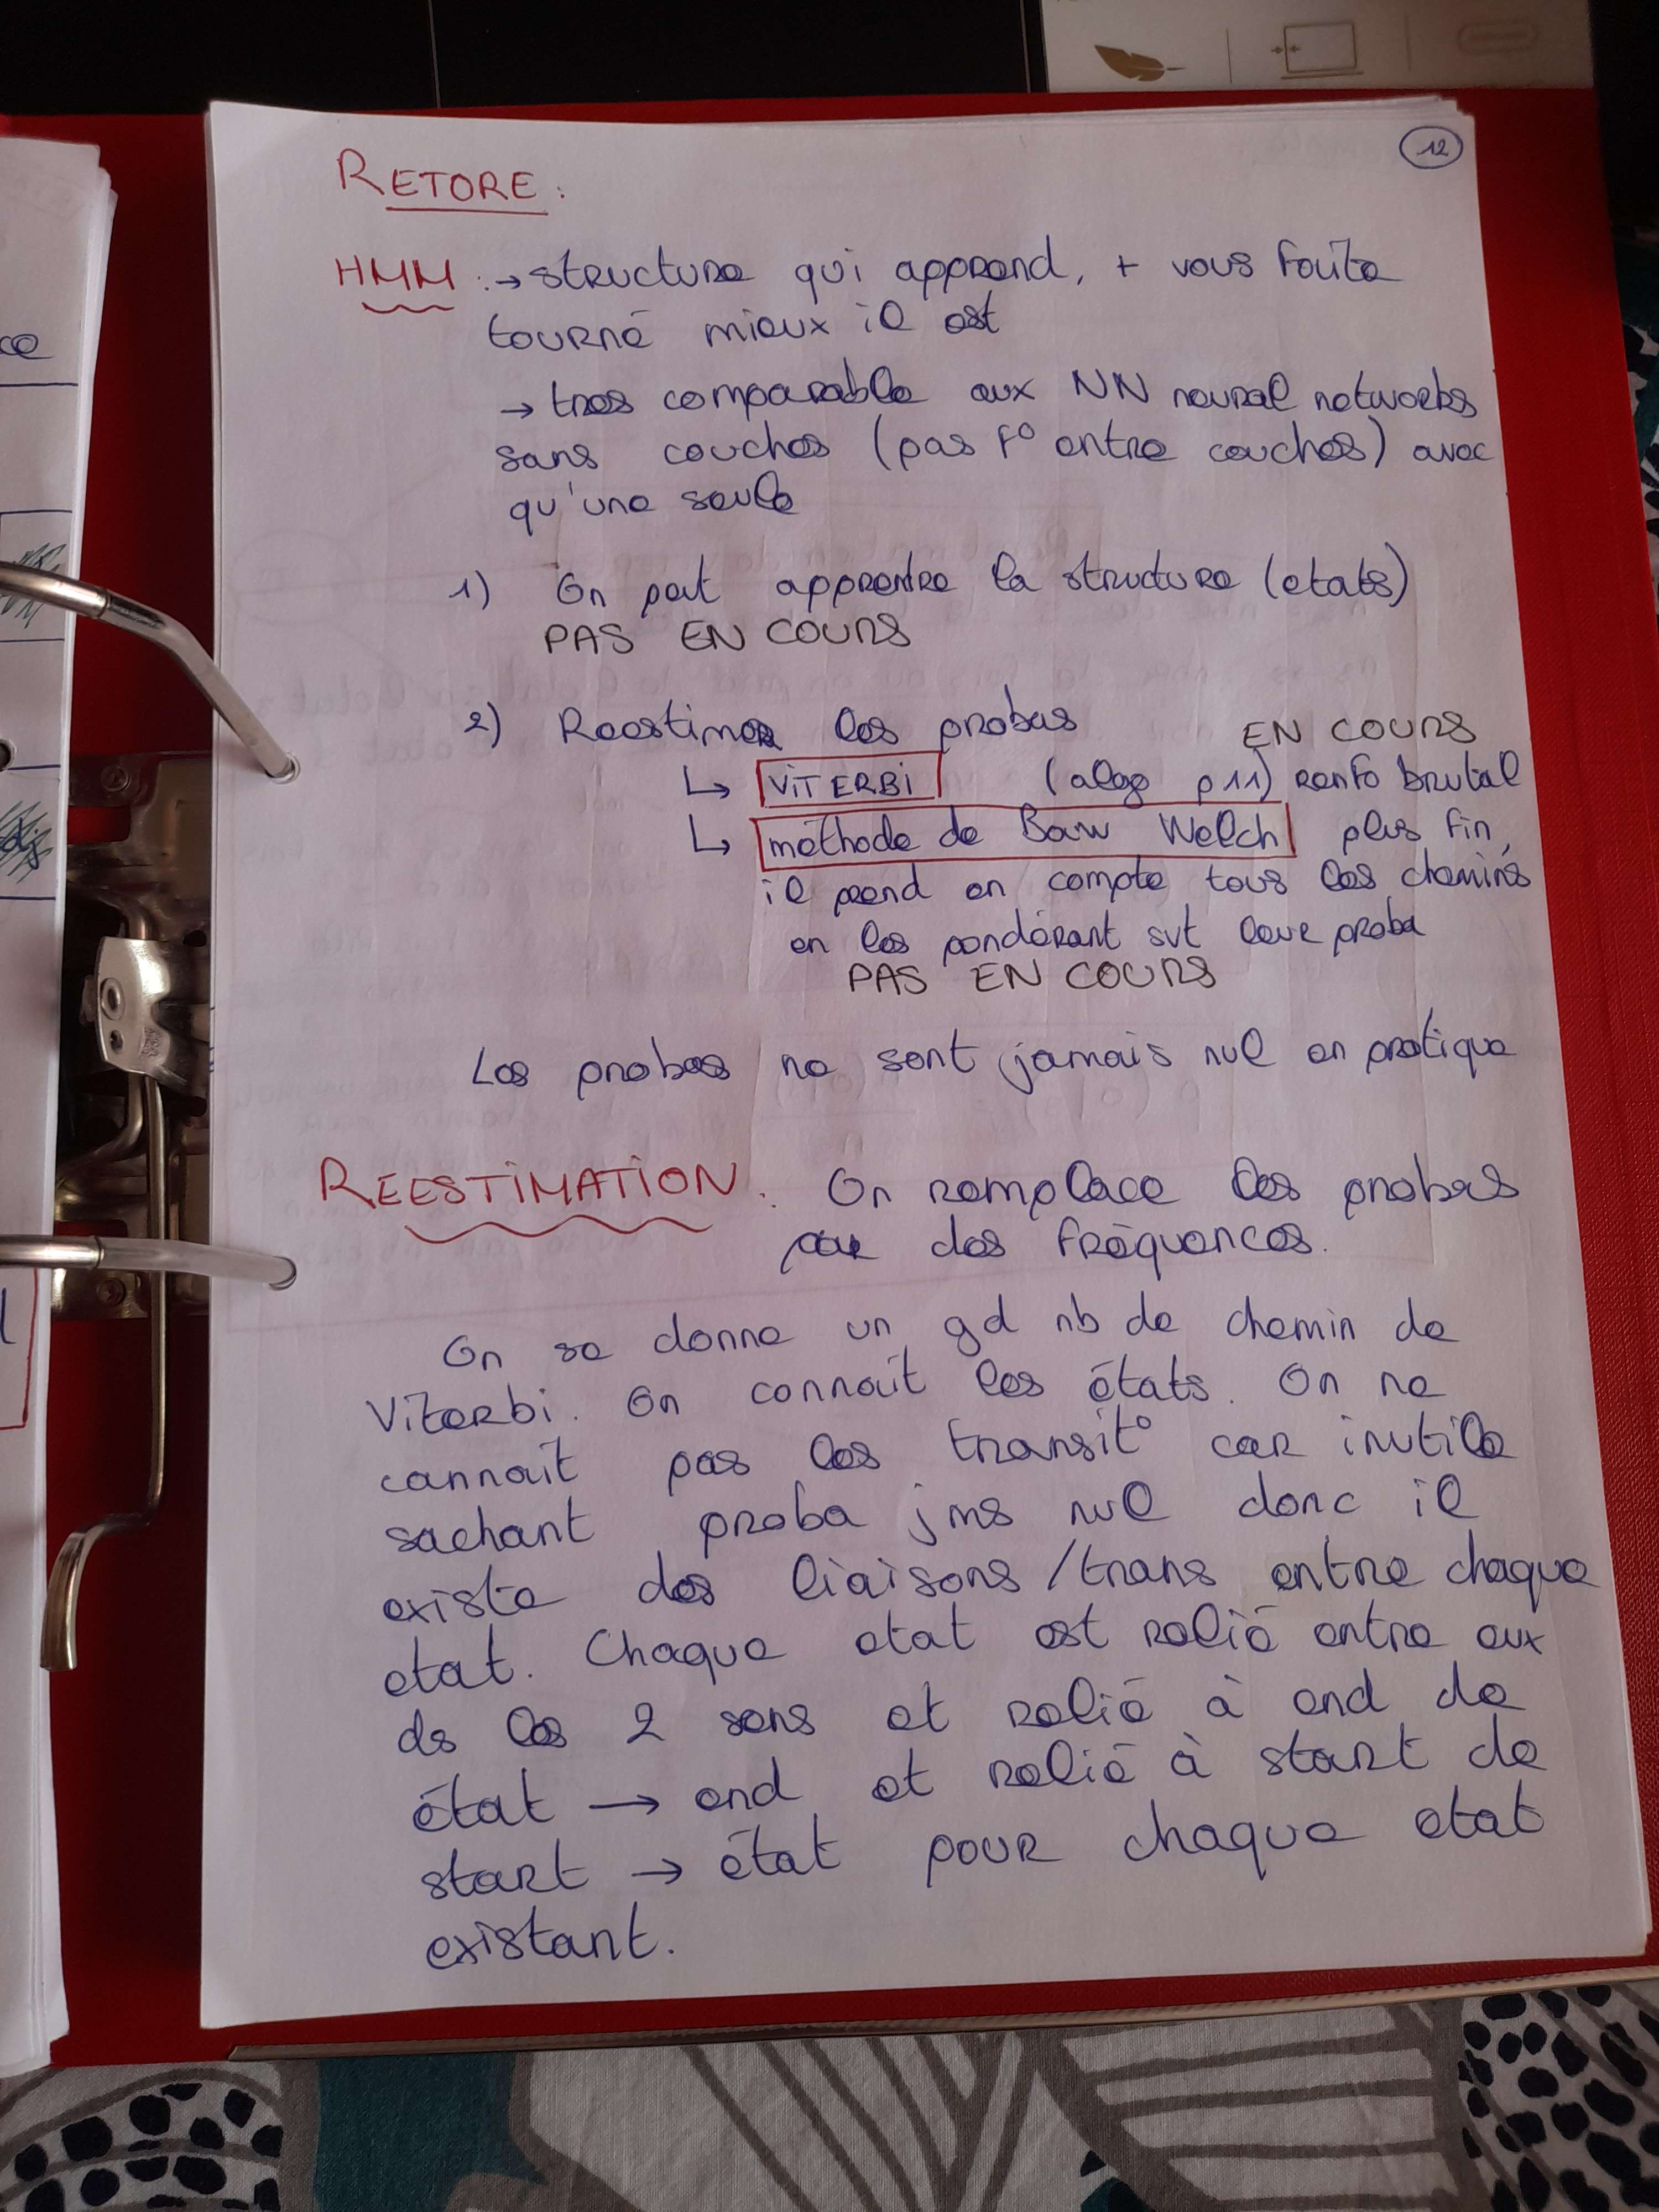 12
RETORE :
HMM : → structure qui apprend, + vous faite
tourné mieux il est
→ tres comparable aux NN neural networks
sans couches (pas f° entre couches) avec
qu'une seule
1) On peut apprentre la structure (etats)
PAS EN COURS
2) Reestimer les probas EN COURS
↳ VITERBI (algo p 11) renfo brutal
↳ méthode de Baw Welch plus fin,
il prend en compte tous les chemins
en les pondérant svt leur proba
PAS EN COURS
Les probas ne sont jamais nul en pratique
REESTIMATION : On remplace les probas
par des fréquences.
On se donne un gd nb de chemin de
Viterbi. On connaît les états. On ne
cannait pas les transit° car inutile
sachant proba jms nul donc il
existe des liaisons/trans entre chaque
etat. Chaque etat est relié entre eux
ds les 2 sens et relié à end de
état → end et relié à start de
start → état pour chaque etat
existant.